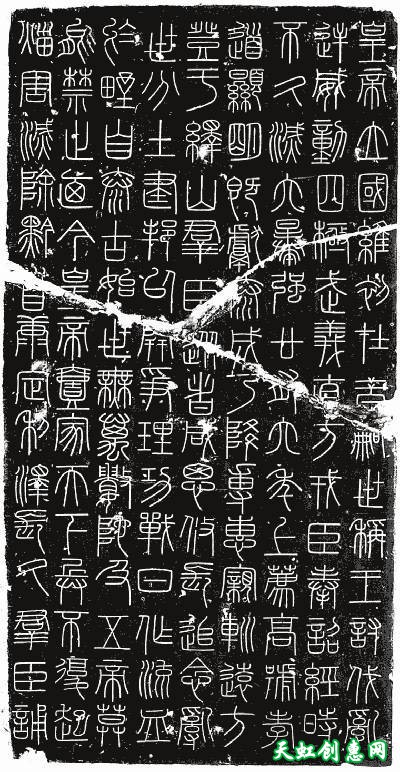 皇帝立國維初在昔嗣世稱王討伐亂
逆威動四極武義直方戎臣奉詔經時
不久滅六暴強廿有六年上薦高號孝
道顯明既獻泰成乃降尃惠寴巡遠方
登于繹山羣臣從者咸思攸長追念亂
世分土建邦以開爭理功戰日作流血
於野自泰古始世無萬數陀及五帝莫
能禁止迺今皇帝壹家天下兵不復起
災害滅除黔首康定利澤長久羣臣誦
天虹创意网